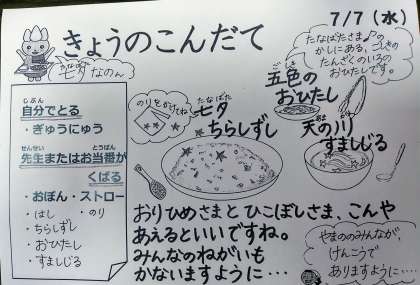 きょうのこんだて
7/7(水)
たなばた
七夕なのん
じぶん
自分でとる
・ぎゅうにゅう
せんせい とうばん
先生またはお当番が
くばる
・おぼん・ストロー
・はし ・のり
・ちらしずし
・おひたし
・すましじる
のりをかけてね
たなばた
七夕
ちらしずし
たなばたさま♪の
かしにある、ごしきの
たんざくのいろの
おひたしです。
五色の
おひたし
天の川
すましじる
おりひめさまとひこぼしさま、こんや
あえるといいですね。
みんなのねがいも
かないますように…
やまののみんなが、
げんこうで
ありますように…